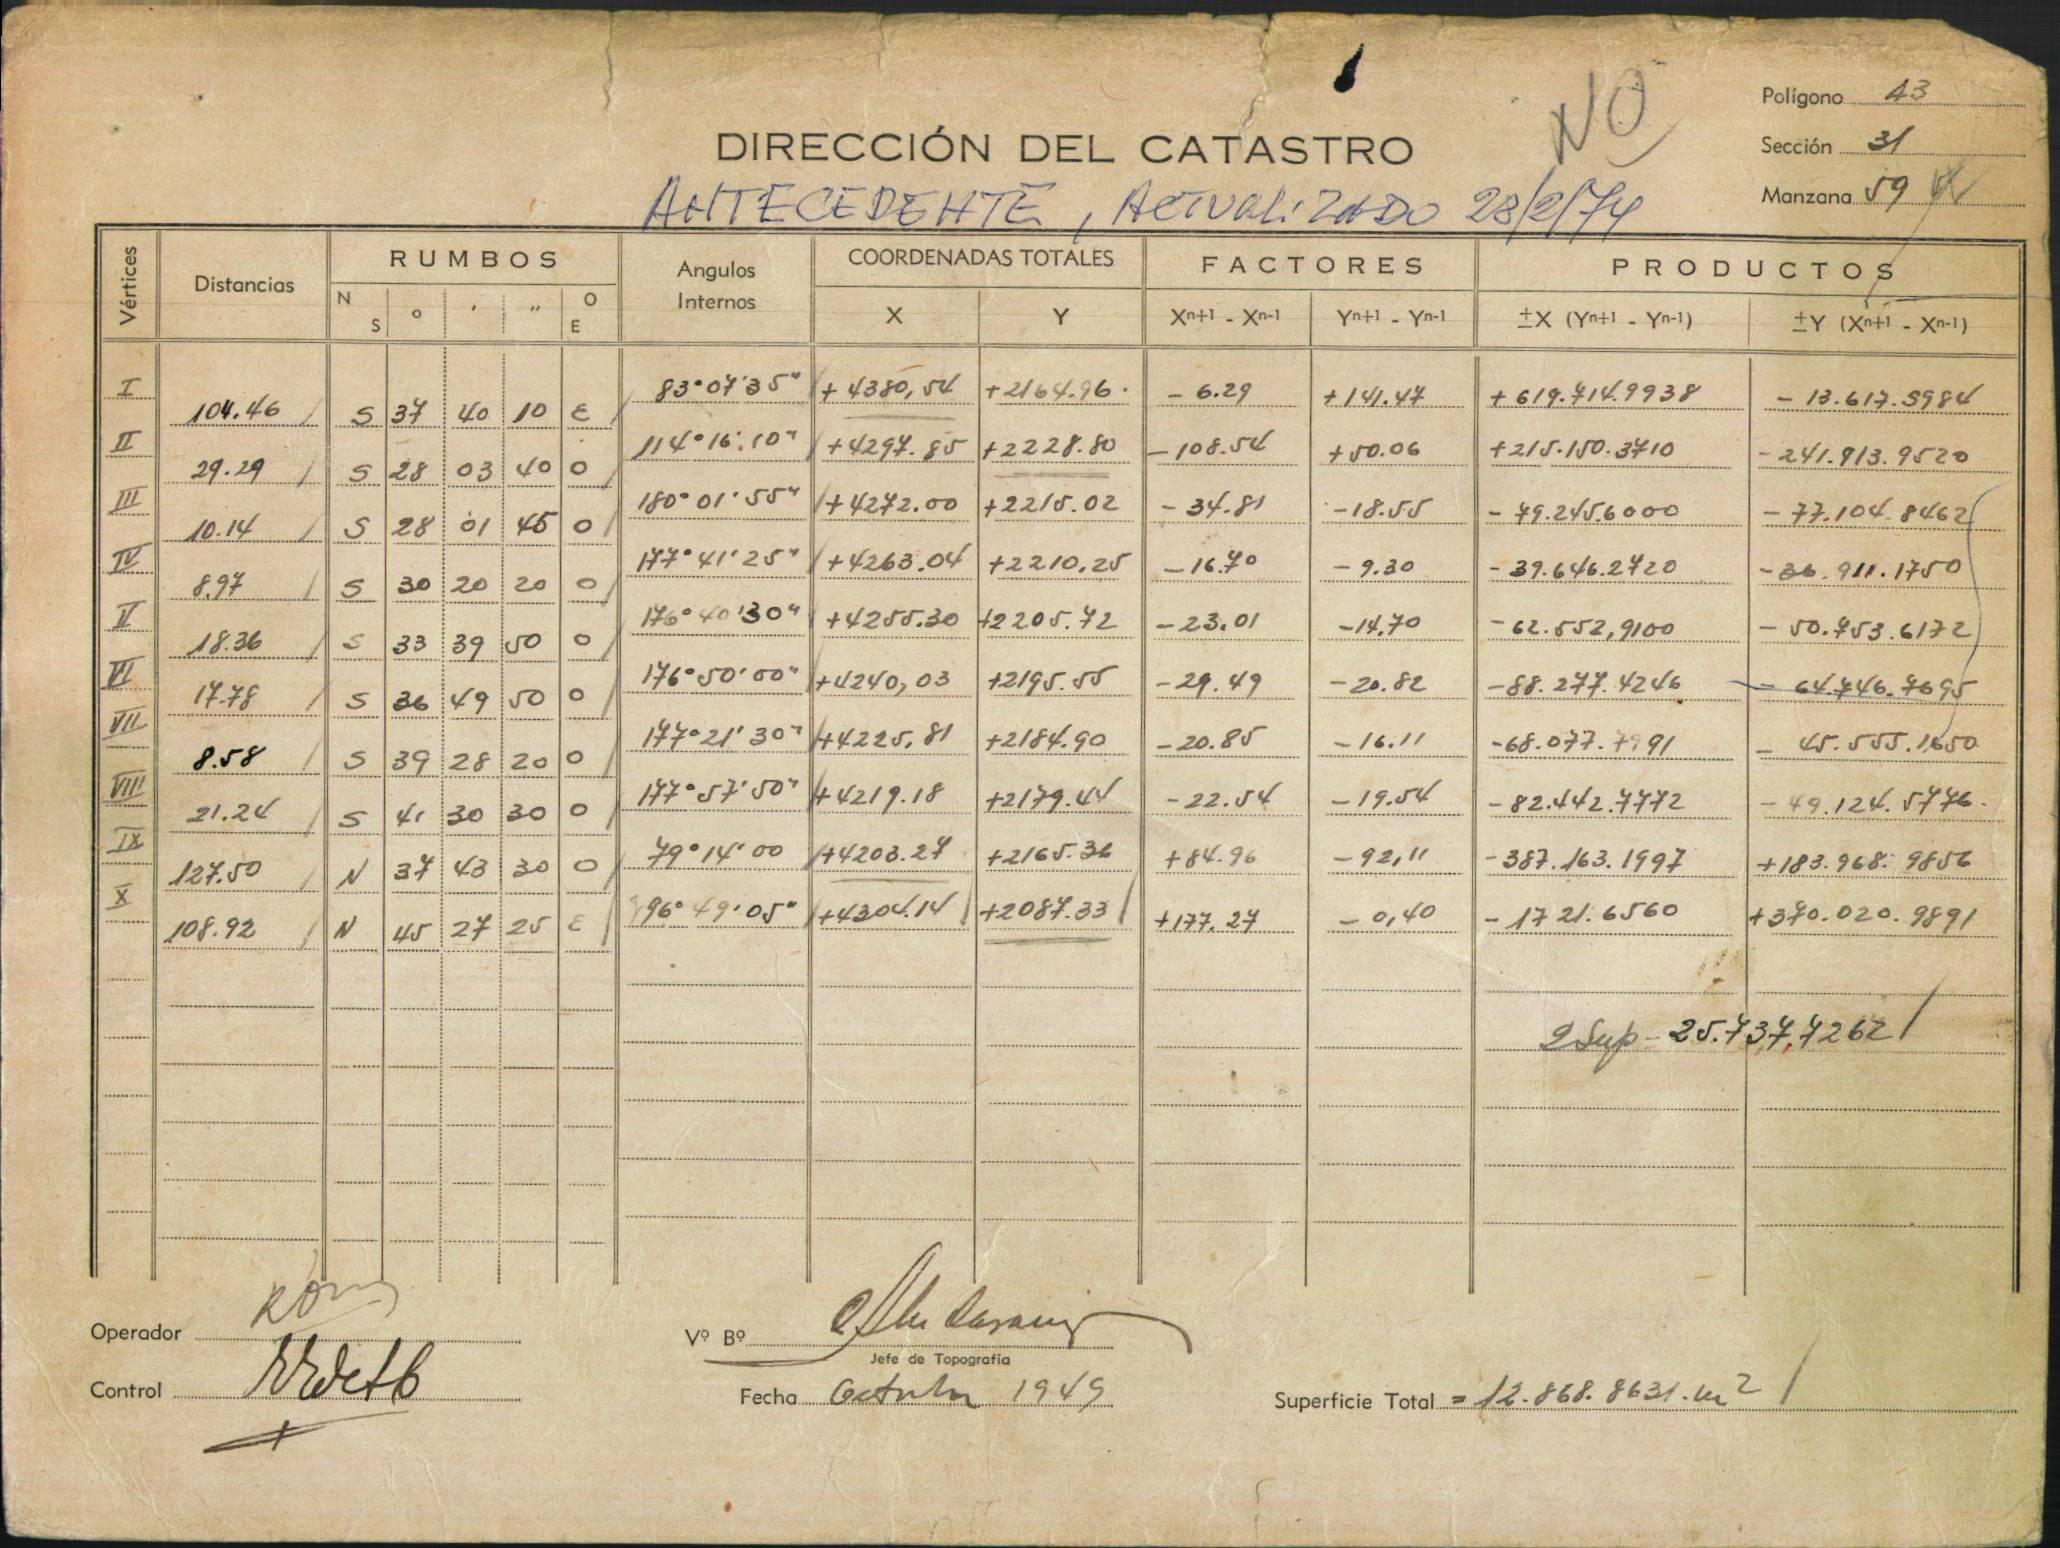 NO
Polígono 43
DIRECCIÓN DEL CATASTRO
Sección 31
Manzana 59
ANTECEDENTE, ACTUALIZADO 28/2/74
Vértices Distancias RUMBOS Angulos Internos COORDENADAS TOTALES FACTORES PRODUCTOS
N S ° ' " O E X Y Xn+1 - Xn-1 Yn+1 - Yn-1 ±X (Yn+1 - Yn-1) ±Y (Xn+1 - Xn-1)
I 83°07'35" +4380,54 +2164.96 -6.29 +141.47 +619.714.9938 -13.617.5984
104.46 S 37 40 10 E
II 114°16'10" +4297.85 +2228.80 -108.54 +50.06 +215.150.3710 -241.913.9520
29.29 S 28 03 40 O
III 180°01'55" +4272.00 +2215.02 -34.81 -18.55 -79.245.6000 -77.104.8462
10.14 S 28 01 45 O
IV 177°41'25" +4263.04 +2210.25 -16.70 -9.30 -39.646.2720 -36.911.1750
8.97 S 30 20 20 O
V 176°40'30" +4255.30 +2205.72 -23.01 -14,70 -62.552,9100 -50.753.6172
18.36 S 33 39 50 O
VI 176°50'00" +4240,03 +2195.55 -29.49 -20.82 -88.277.4246 -64.746.7695
17.78 S 36 49 50 O
VII 177°21'30" +4225,81 +2184.90 -20.85 -16.11 -68.077.7991 -45.555.1650
8.58 S 39 28 20 O
VIII 177°57'50" +4219.18 +2179.44 -22.54 -19.54 -82.442.7772 -49.124.5776
21.24 S 41 30 30 O
IX 79°14'00 +4203.27 +2165.36 +84.96 -92,11 -387.163.1997 +183.968.9856
127.50 N 37 43 30 O
X 96°49'05" +4304.14 +2087.33 +177.27 -0,40 -1721.6560 +370.020.9891
108.92 N 45 27 25 E
2 Sup - 25.737,7262
Operador
Vº Bº
Jefe de Topografía
Control
Fecha Octubre 1949
Superficie Total = 12.868.8631.m2